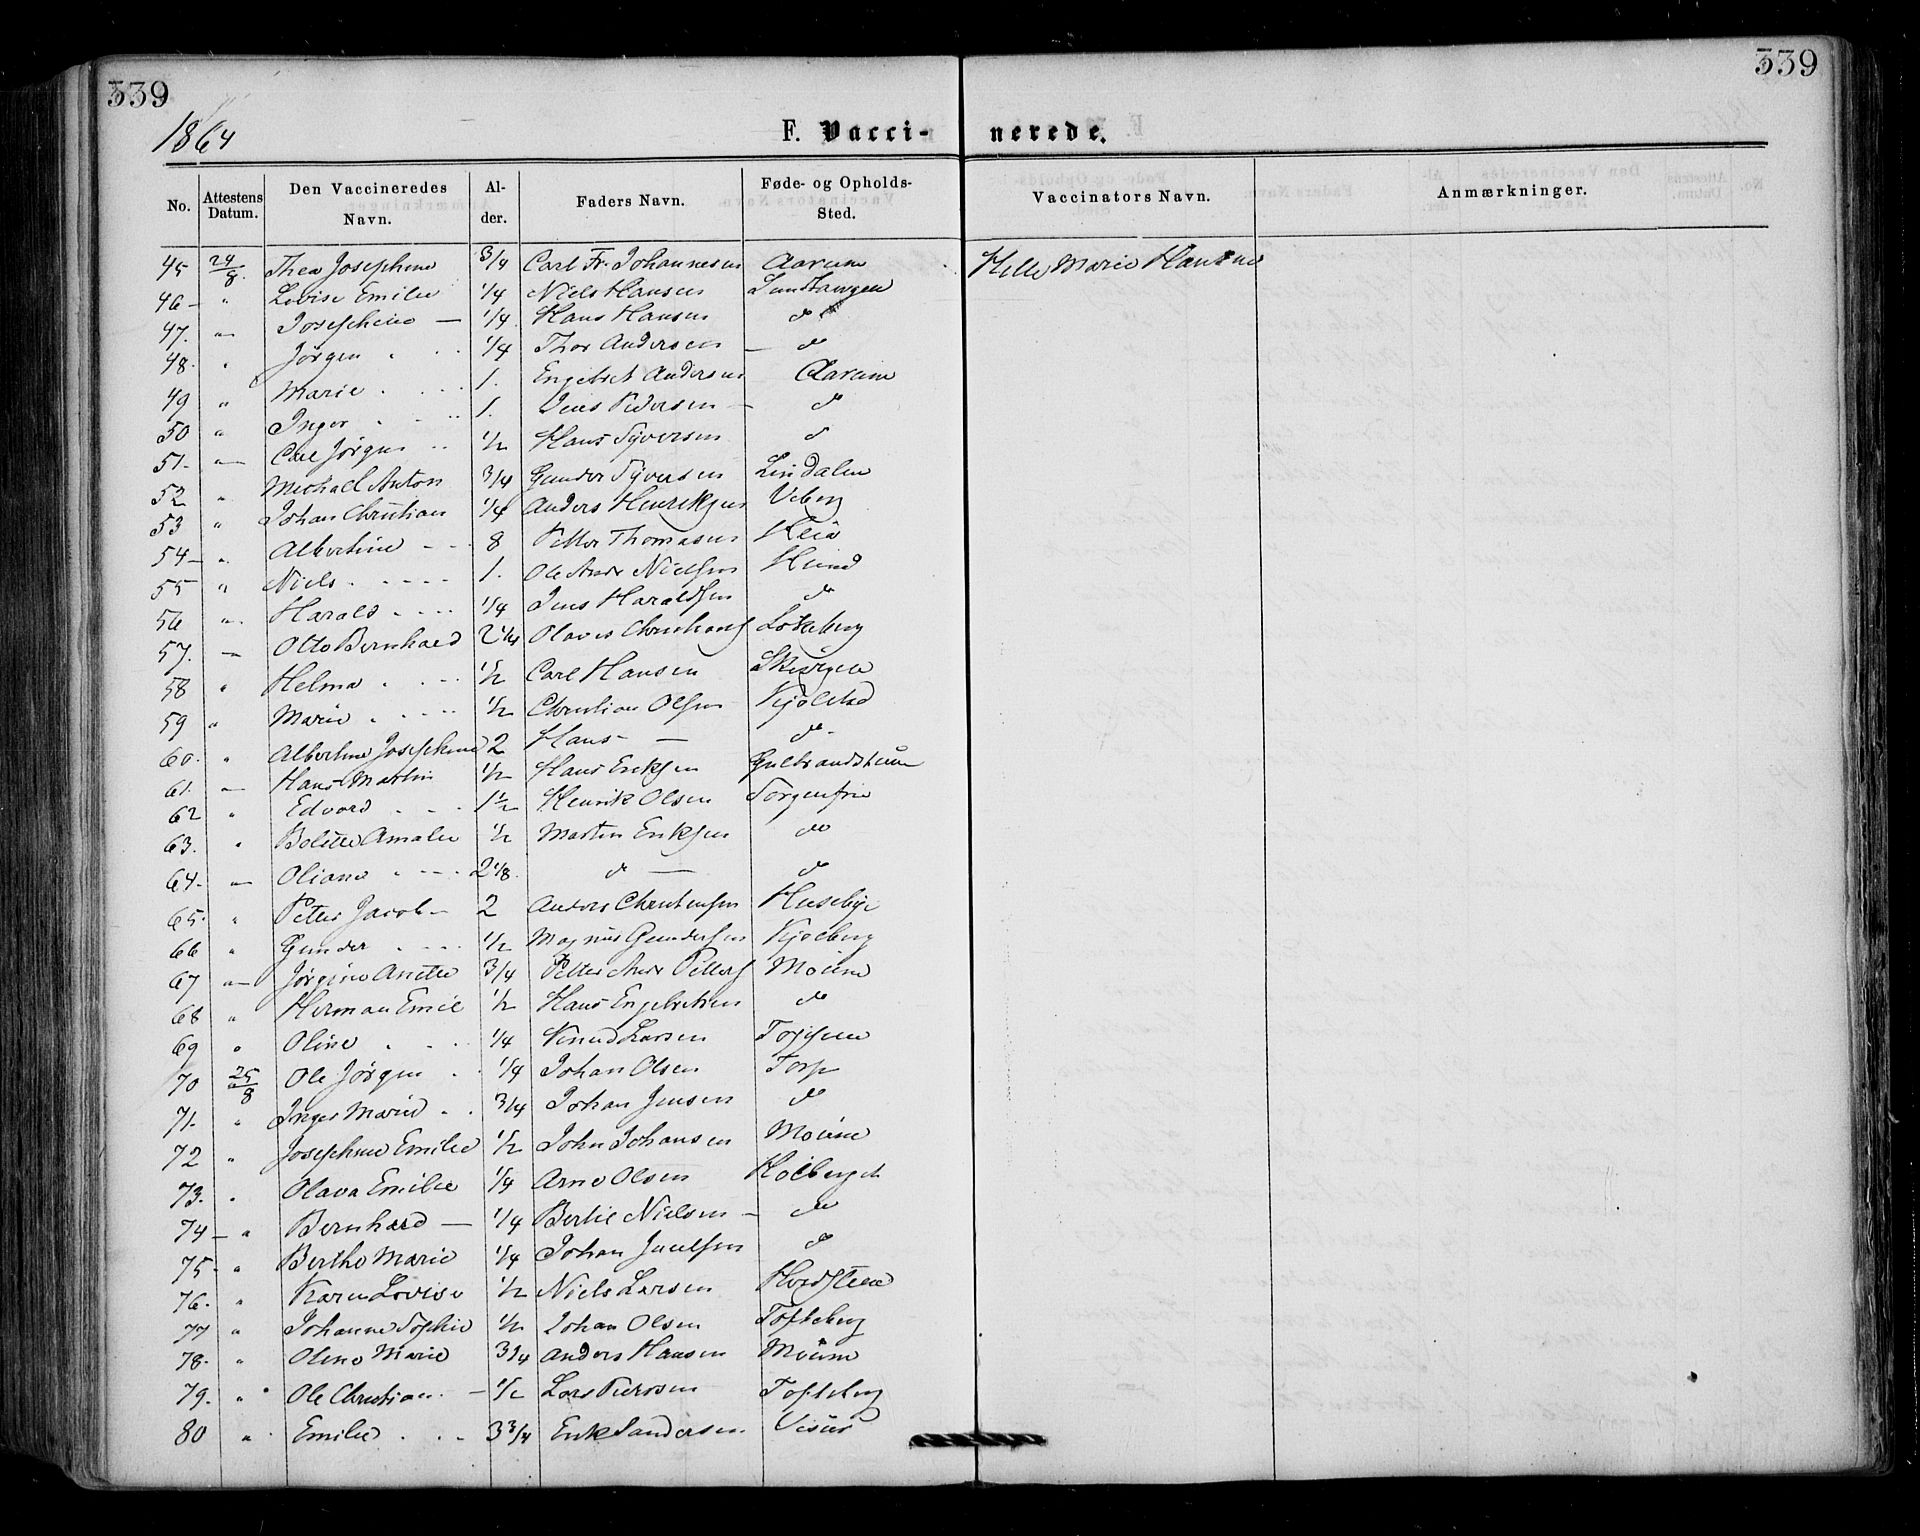 339
339
1864
F. Vaccinerede.
No. Attestens Datum. Den Vaccineredes Navn. Alder. Faders Navn. Føde- og Opholds-Sted. Vaccinators Navn. Anmærkninger.
45 24/8. Thea Josephine 3/4 Carl Fr. Johannesen Aarum Helle Marie Hansen
46 - " Lovise Emilie 1/4 Niels Hansen
47. " Josephine — 1/4 Hans Hansen do
48. " Jørgen 1/4 Thor Andersen — do
49 " Marie 1. Engebret Andersen Aarum
50 " Inger 1. Jens Pedersen — do
51. " Carl Jørgen 1/2 Hans Syversen do
52 " Michael Anton 3/4 Gunder Syversen Lindalen
53 " Johan Christian 1/4 Anders Henriksen Veberg
54 - " Albertine 8 Petter Thomasen Heia
55 " Niels 1. Ole Andr Nielsen Hund
56 " Harald 1/4 Jens Haraldsen do
57. — Otto Bernhard 2 1/4 Olaves Christians Løkeberg
58 " Helma 1/2 Carl Hansen
59 " Marie 1/2 Christian Olsen Kjølstad
60. " Albertine Josephine 2 Hans — do
61. " Hans Martin 1/2 Hans Eriksen
62 " Edvard 1 1/2 Henrik Olsen Sorgenfrie
63. " Bolette Amalie 1/2 Martin Eriksen do
64. — Oliane 2 1/8. do — do
65. " Petter Jacob — 2 Anders Christensen Husebye
66 " Gunder 1/2 Magnus Gundersen Kjølberg
67 " Jørgine Anette 3/4 Petter Andr Petters Moum
68 " Herman Emil 1/2 Hans Engebretsen do
69 " Oline 1/4 Knud Larsen
70 25/8 Ole Jørgen 1/4 Johan Olsen Torp
71. " Inger Marie 3/4 Johan Jensen do
72 " Josephine Emilie 1/2 John Johansen Moum
73. " Olava Emilie 1/4 Arne Olsen Holberget
74 - " Bernhard — 1/4 Bertil Nielsen — do
75 - " Berthe Marie 1/4 Johan Juulsen do
76. " Karen Lovise 1/2 Niels Larsen Hvidsteen
77 " Johanne Sophie 1/2 Johan Olsen Tofteberg
78. " Oline Marie 3/4 Anders Hansen Moum
79. " Ole Christian — 1/2 Lars Pedersen Tofteberg
80 " Emilie 3 3/4 Erik Sandersen